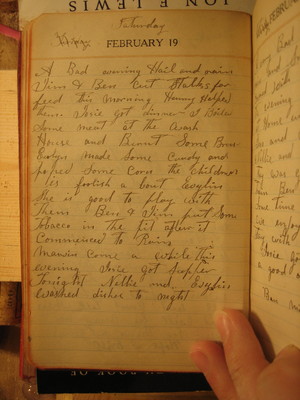 JON E LEWIS
Saturday
FEBRUARY 19
A Bad evening Hail and rain
Jim & Ben Cut Stalks for
feed this morning Hunny Helped
them Irie got dinner & Boiled
Some meat at the Wash
House and Burnt Some Bone
Evelyn made Some Candy and
poped Some Corn the Childrens
is foolish a bout Evylin
She is good to play with
Them Ben & Jim put Some
tobacco in the pit after it
Commenced to Rain
come a while this
evening Irie got supper
tonight Nellie and Evylin
washed dishes to night
BOOK OF